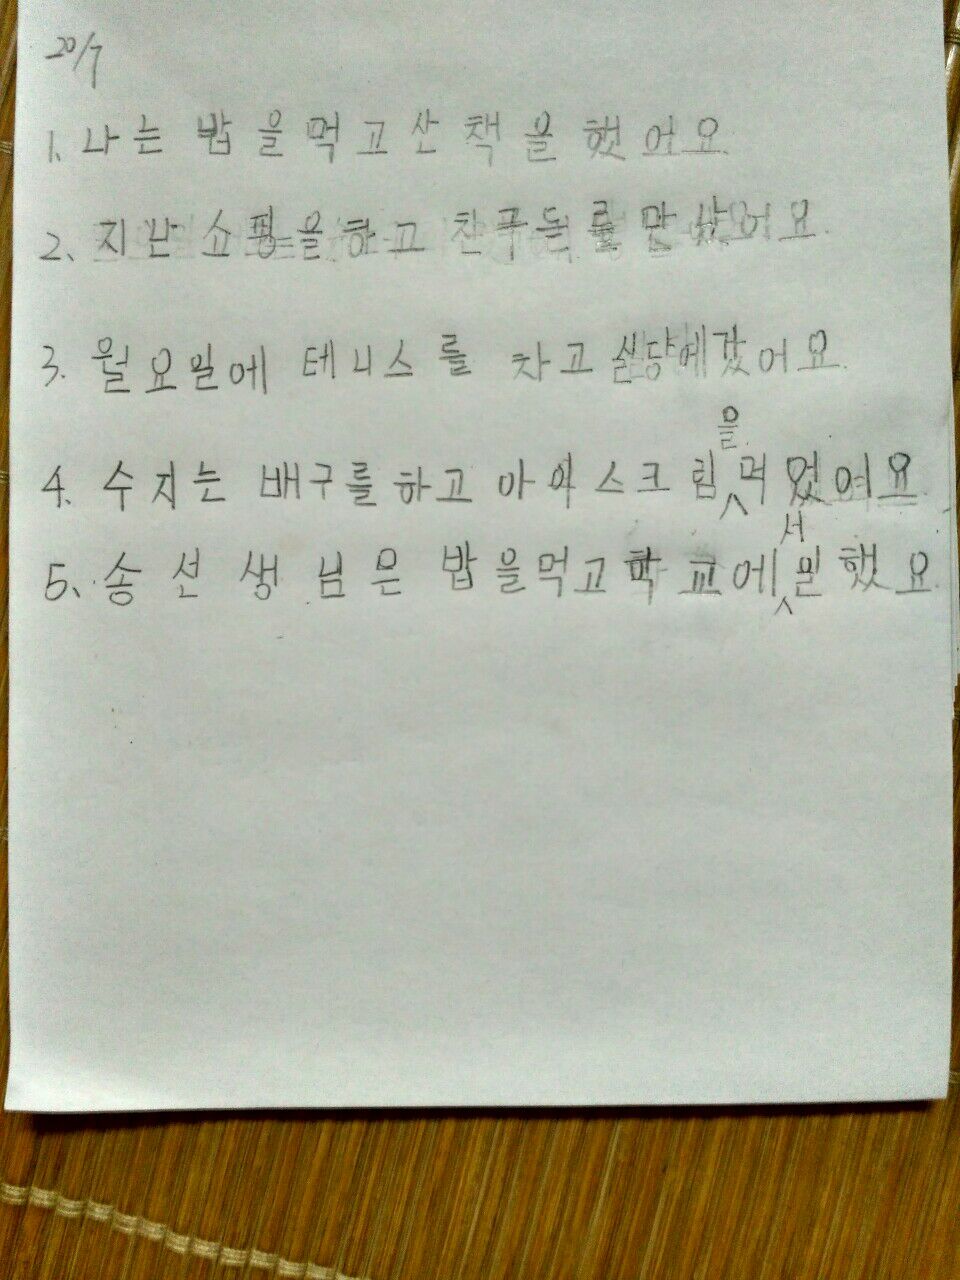 20/7
1. 나는 밥을 먹고 산책을 했어요.
2. 지난 쇼핑을 하고 친구들를 만났어요.
3. 월요일에 테니스를 차고 식당에 갔어요.
4. 수지는 배구를 하고 아이스크림을 먹었어요.
5. 송 선생님은 밥을 먹고 학교에서 일했요.